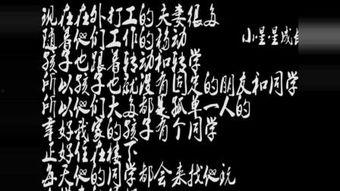 现在在外打工的夫妻很多
随着他们工作的移动
小星星成
孩子也跟着转动和转学
所以孩子也就没有固定的朋友和同学
所以他们大多都是孤单一人的
幸好我家的孩子有个同学
正好住在楼下
每天他的同学都会来找他玩